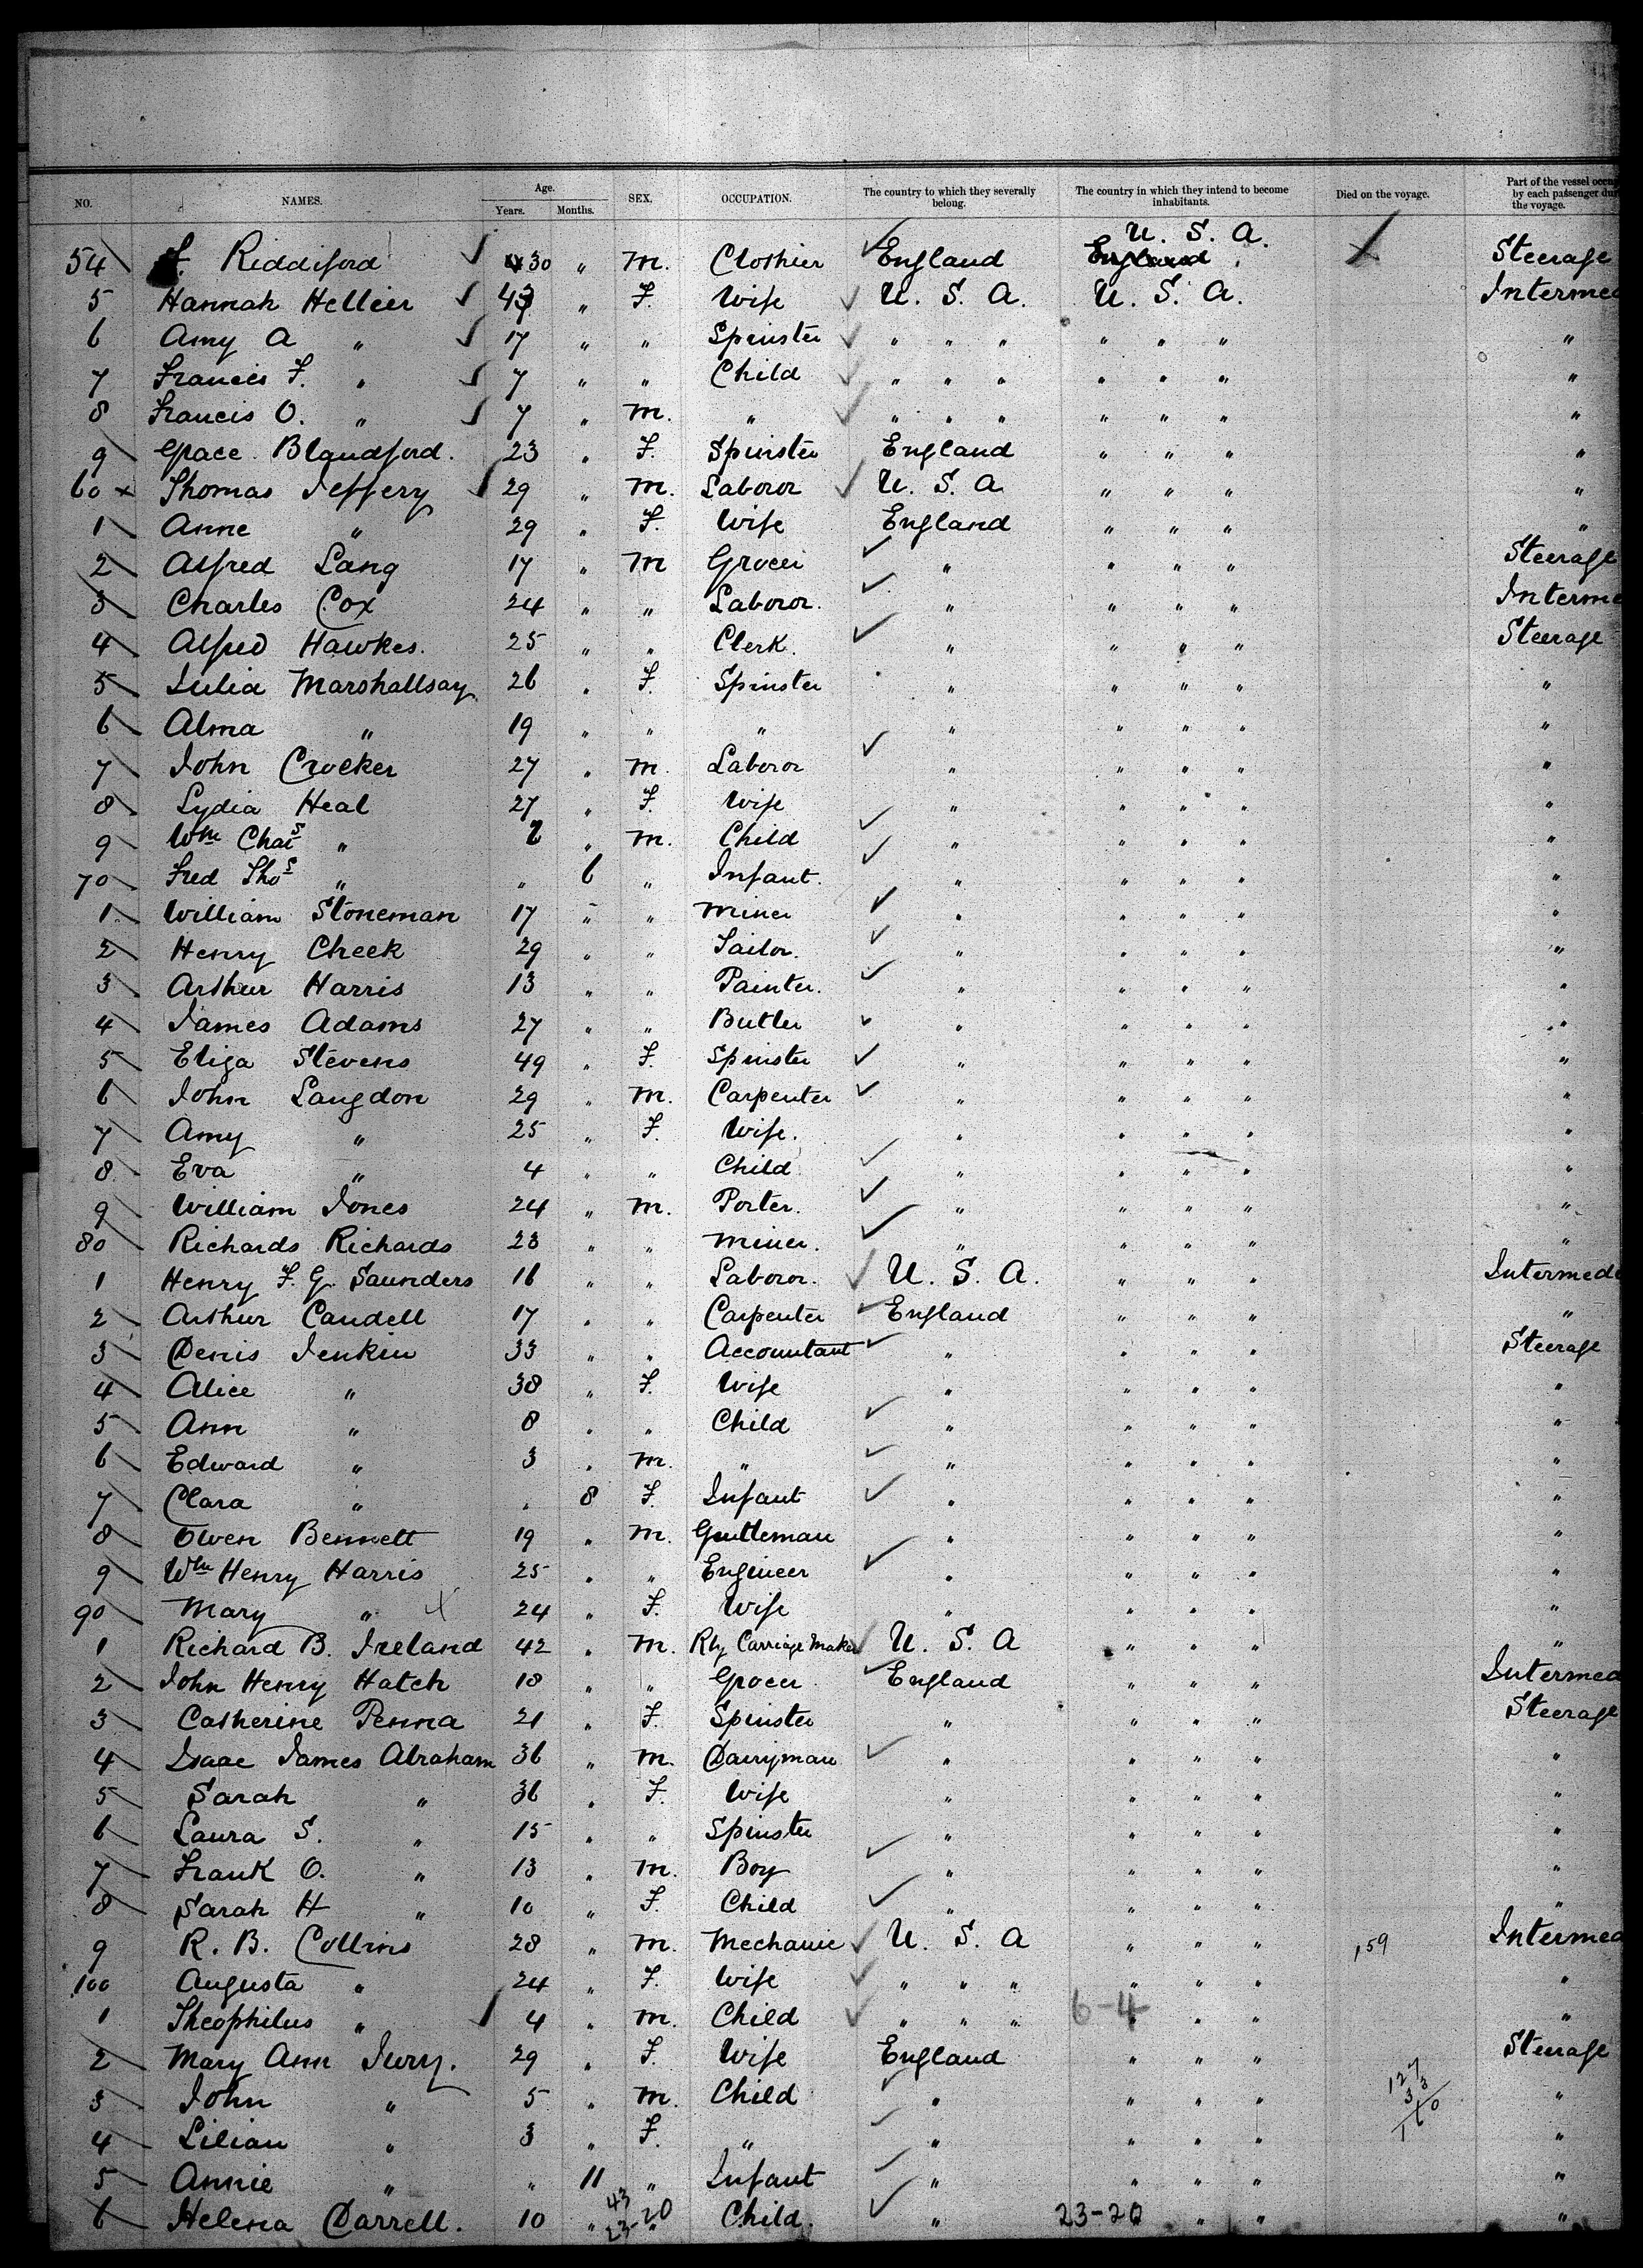 NO. NAMES. Age. Years. Months. SEX. OCCUPATION. The country to which they severally belong. The country in which they intend to become inhabitants. Died on the voyage. Part of the vessel by each passenger the voyage.
U. S. A.
54 Riddiford 30 " M. Clothier England England Steerage
5 Hannah Hellier 43 " F. Wife U. S. A. U. S. A. Intermed
6 Amy A " 17 " " Spinster " " " " " " "
7 Francis F. " 7 " " Child " " " " " " "
8 Francis O. " 7 " M. " " " " " " " "
9 Grace Blandford. 23 " F. Spinster England " " " "
60 x Thomas Jeffery 29 " M. Laboror U. S. A " " " "
1 Anne " 29 " F. Wife England " " " "
2 Alfred Lang 17 " M Grocer " " " " Steerage
3 Charles Cox 24 " " Laboror. " " " " Interme
4 Alfred Hawkes. 25 " " Clerk. " " " " Steerage
5 Julia Marshallsay 26 " F. Spinster " " " " "
6 Alma " 19 " " " " " " " "
7 John Crocker 27 " M. Laboror " " " " "
8 Lydia Heal 27 " F. Wife " " " " "
9 Wm Chas " 2 " M. Child " " " " "
70 Fred Thos " " 6 " Infant. " " " " "
1 William Stoneman 17 " " Miner " " " " "
2 Henry Cheek 29 " " Tailor. " " " " "
3 Arthur Harris 13 " " Painter. " " " " "
4 James Adams 27 " " Butler " " " " "
5 Eliza Stevens 49 " F. Spinster " " " " "
6 John Langdon 29 " M. Carpenter " " " " "
7 Amy " 25 " F. Wife. " " " " "
8 Eva " 4 " " Child " " " " "
9 William Jones 24 " M. Porter. " " " " "
80 Richards Richards 23 " " Miner. " " " " "
1 Henry F. G. Saunders 16 " " Laboror. U. S. A. " " " Intermed
2 Arthur Caudell 17 " " Carpenter England " " " "
3 Denis Jenkin 33 " " Accountant " " " " Steerage
4 Alice " 38 " F. Wife " " " " "
5 Ann " 8 " " Child " " " " "
6 Edward " 3 " M. " " " " " "
7 Clara " " 8 F. Infant " " " " "
8 Owen Bennett 19 " M. Gentleman " " " " "
9 Wm Henry Harris 25 " " Engineer " " " " "
90 Mary " x 24 " F. Wife " " " " "
1 Richard B. Ireland 42 " M. Rly Carriage Maker U. S. A " " " "
2 John Henry Hatch 18 " " Grocer England " " " Intermed
3 Catherine Penna 21 " F. Spinster " " " " Steerage
4 Isaac James Abraham 36 " M. Dairyman " " " " "
5 Sarah " 36 " F. Wife " " " " "
6 Laura S. " 15 " " Spinster " " " " "
7 Frank O. " 13 " M. Boy " " " " "
8 Sarah H " 10 " F. Child " " " " "
9 R. B. Collins 28 " M. Mechanic U. S. A " " " 159 Intermed
100 Augusta " 24 " F. Wife " " " " " " "
1 Theophilus " 4 " M. Child " " " 6-4 " " " "
2 Mary Ann Jury. 29 " F. Wife England " " " Steerage
3 John " 5 " M. Child " " " " 127 33 160 "
4 Lilian " 3 " F. " " " " " "
5 Annie " " 11 " Infant " " " " "
43
6 Helena Darrell. 10 " 23-20 " Child. " 23-20 " " "